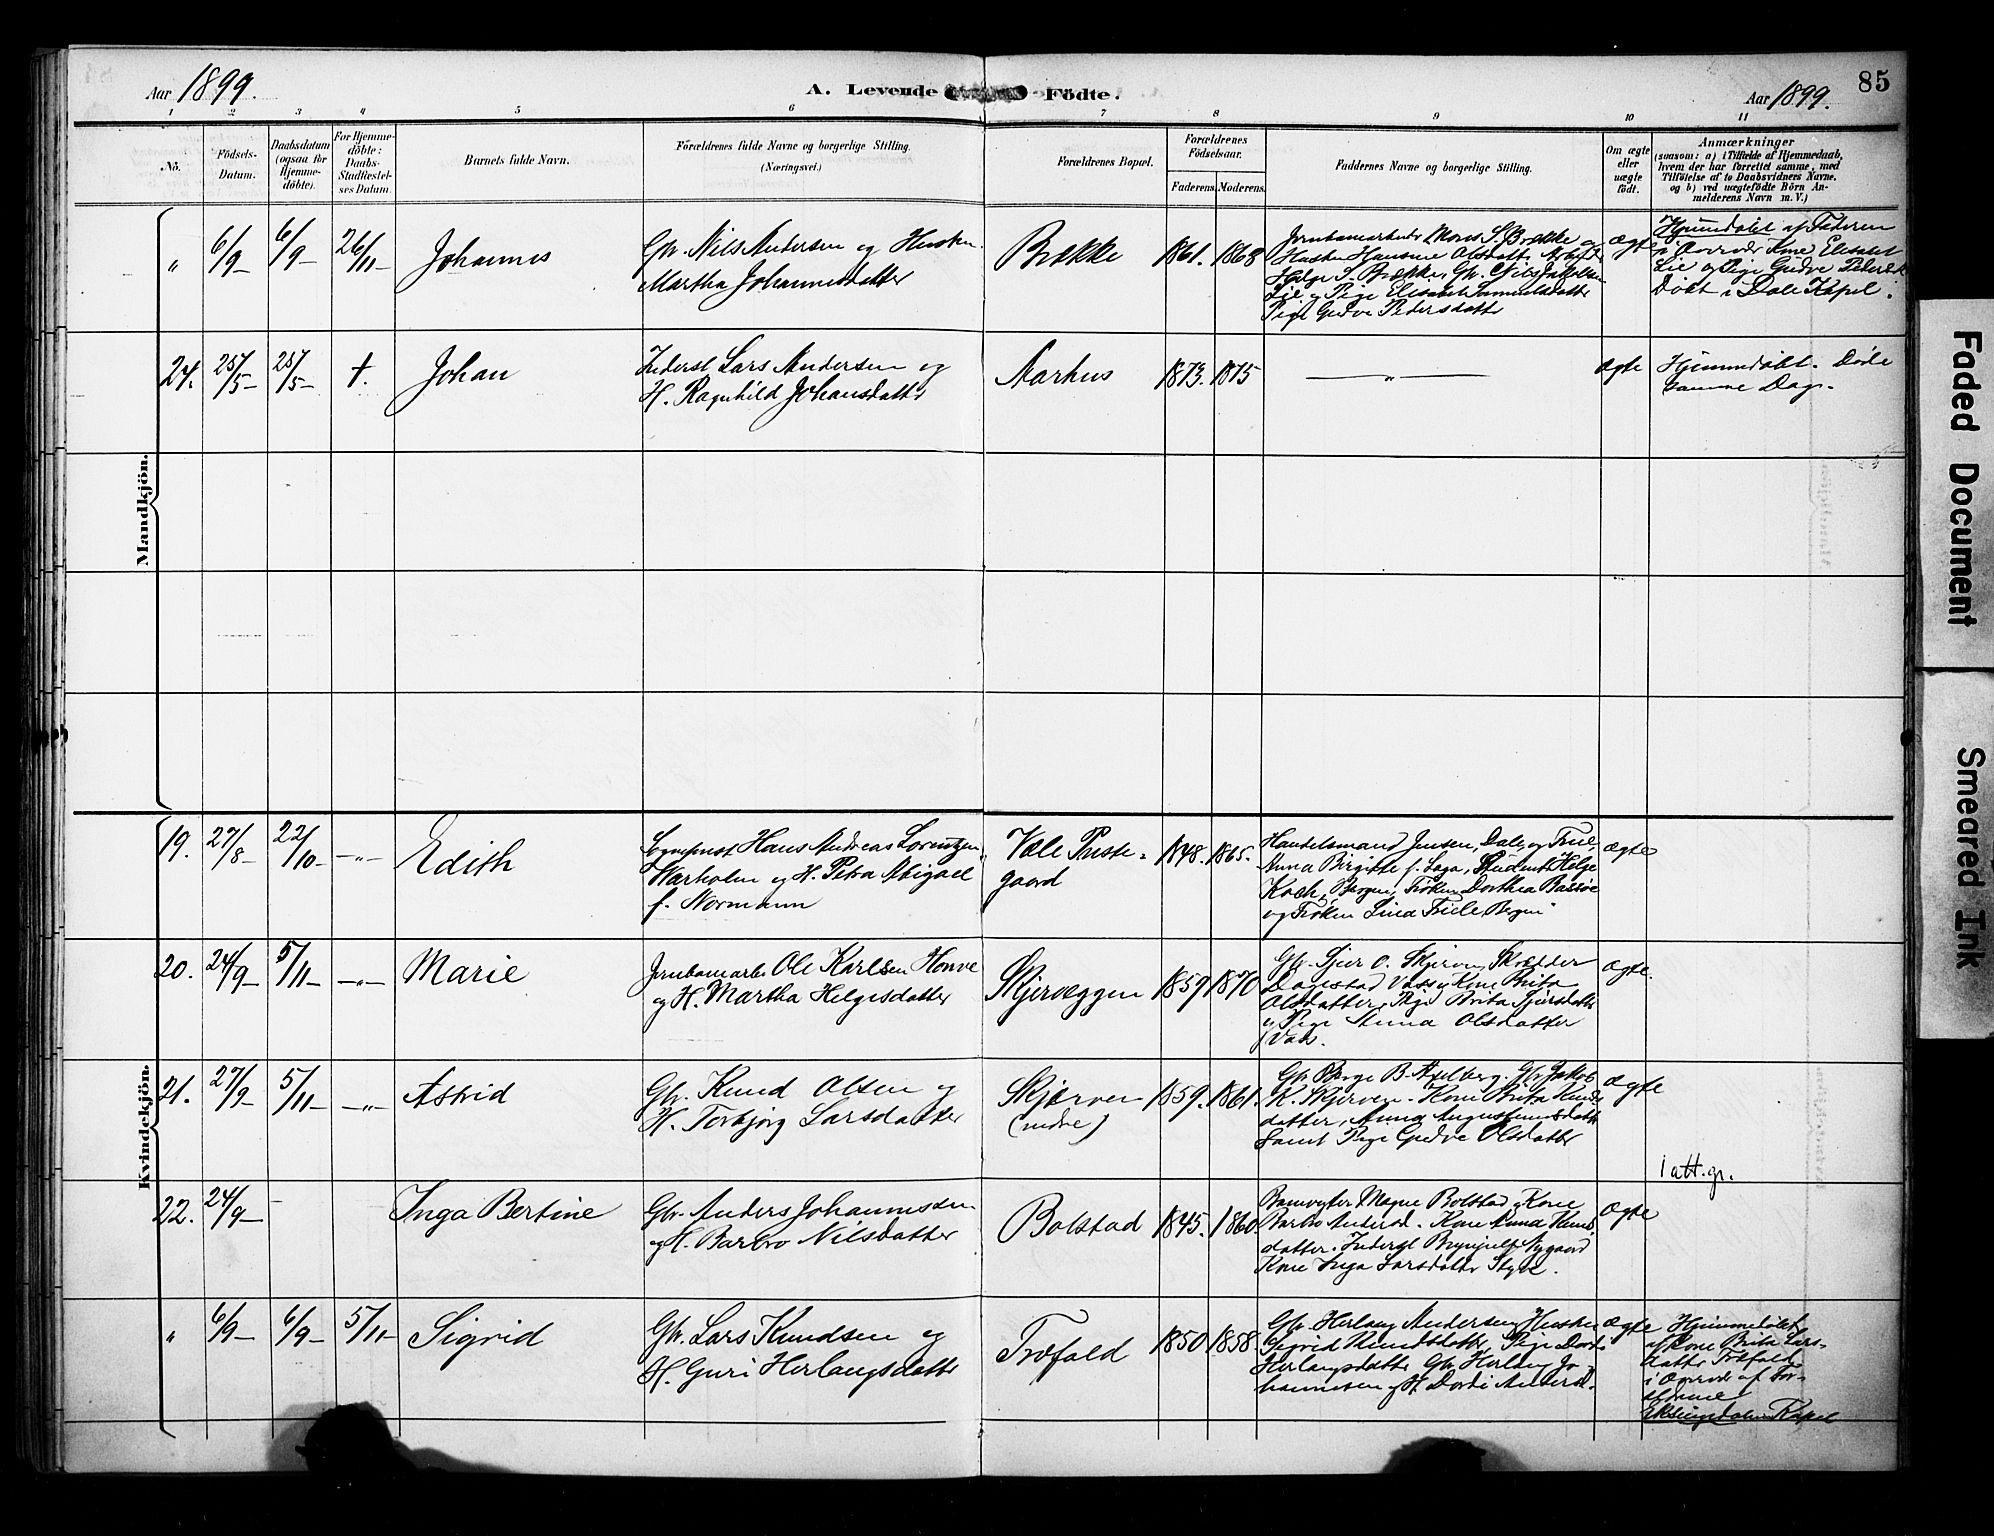 Aar 1899.
A. Levende Födte.
Aar 1899.
85
1 2 3 4 5 6 7 8 9 10 11
No.
Födsels-
Datum.
Daabsdatum
(ogsaa for
Hjemme-
döbte).
For Hjemme-
döbte:
Daabs-
Stadfæstel-
ses Datum.
Barnets fulde Navn.
Forældrenes fulde Navne og borgerlige Stilling.
(Næringsvei.)
Forældrenes Bopæl.
Forældrenes
Födselsaar.
Faderens. Moderens.
Faddernes Navne og borgerlige Stilling.
Om ægte
eller
uægte
födt.
Anmærkninger
(saasom: a) i Tilfælde af Hjemmedaab,
hvem der har forrettet samme, med
Tilföielse af to Daabsvidners Navne,
og b) ved uægtefödte Börn An-
melderens Navn m. V.)
Mandkjön.
" 6/9- 6/9- 26/11- Johannes
Gbr. Nils Andersen og Hustru
Martha Johannesdatter
Brække 1861. 1868
Jernbanearbeider Mons S. Brække og
Hustru Hansine Olsdatter, Arbeider
Helge S. Brække, Gbr. Nils Jakobsen
Lie og Pige Elisabet Samuelsdatter
Pige Gudve Pedersdatter
ægte
Hjemmedøbt af Faderen
i Overvær Kone Elisabet
Lie og Pige Gudve Peders
Døbt i Dale Kapel.
24. 25/5- 25/5- †. Johan
Inderst Lars Andersen og
H. Ragnhild Johansdatter
Aarhus 1873. 1875 — " — ægte
Hjemmedøbt. Døde
samme Dag.
Kvindekjön.
19. 27/8- 22/10- -"- Edith
Sognepræst Hans Andreas Lorentzen
Warholm og H. Petra Abigael
f. Normann
Vale Præste-
gaard
1848. 1865.
Handelsmand Jensen, Dale, og Frue,
Anna Birgitte f. Saga, Student Helge
Koch, Bergen, Frøken Dorthea Bassøe
og Frøken Lina Friele Bergen
ægte
20. 24/9- 5/11- -"- Marie
Jernbanearb. Ole Karlsen Honve
og H. Martha Helgesdatter
Skjerveggen 1859 1870
Gbr. Sjur O. Skjerven, Skrædder
Dagestad Voss og Kone Brita
Olsdatter, Pige Brita Sjursdatter
og Pige Anna Olsdatter
ægte.
21. 27/9- 5/11- -"- Astrid
Gbr. Knud Olsen og
H. Torbjørg Larsdatter
Skjerven
(nedre)
1859. 1861.
Gbr. Børge B. Axelberg. Gbr. Jakob
K. Skjerven. Kone Brita Knuds
datter, Anna Augustinusdatter
samt Pige Gudve Olsdatter
ægte
1 att. gr.
22. 24/9- - Inga Bertine
Gbr. Anders Johannessen
og H. Barbro Nilsdatter
Bolstad 1845. 1860.
Banevogter Magne Bolstad og Kone
Barbro Andersd. Kone Anna Knuds
datter. Inderst Brynjulf Nygaard
Kone Inga Larsdatter Styve.
ægte
" 6/9- 6/9- 5/11- Sigrid
Gbr. Lars Knudsen og
H. Guri Herlaugsdatter
Trefald 1850 1858.
Gbr. Herlaug Andersen, Hustru
Sigrid Knudsdatter, Pige Dordi
Herlaugsdatter Gbr. Herlaug Jo-
hannesen og H. Dordi Andersd.
ægte
Hjemmedøbt
af Kone Brita Lars-
datter Trefald
i Overvær af For-
ældrene
Eksingdalens Kapel
Faded Document
Smeared Ink